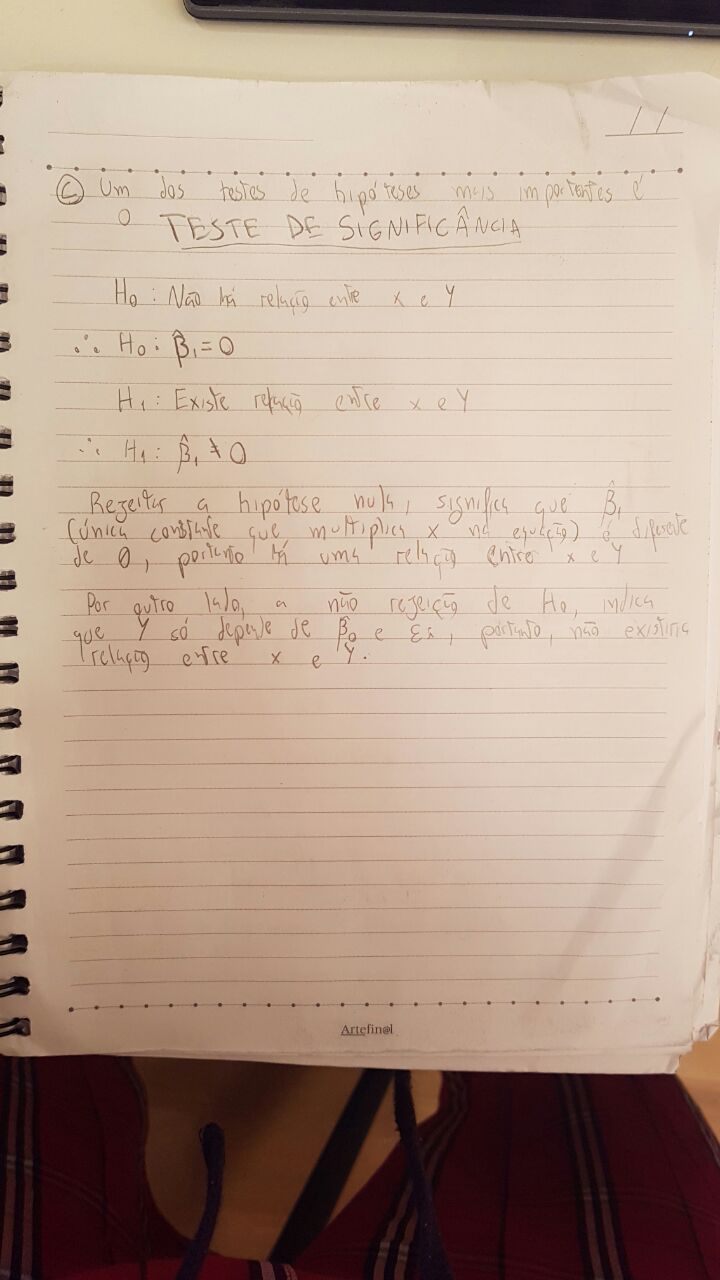 / /
Ⓒ Um dos testes de hipóteses mais importantes é
o TESTE DE SIGNIFICÂNCIA
H₀ : Não há relação entre x e Y
∴ H₀ : β̂₁ = 0
H₁ : Existe relação entre x e Y
∴ H₁ : β̂₁ ≠ 0
Rejeitar a hipótese nula, significa que β̂₁
(única constante que multiplica x na equação) é diferente
de 0, portanto há uma relação entre x e Y
Por outro lado, a não rejeição de H₀, indica
que Y só depende de β̂₀ e Ɛi, portanto, não existiria
relação entre x e Y.
Artefinal